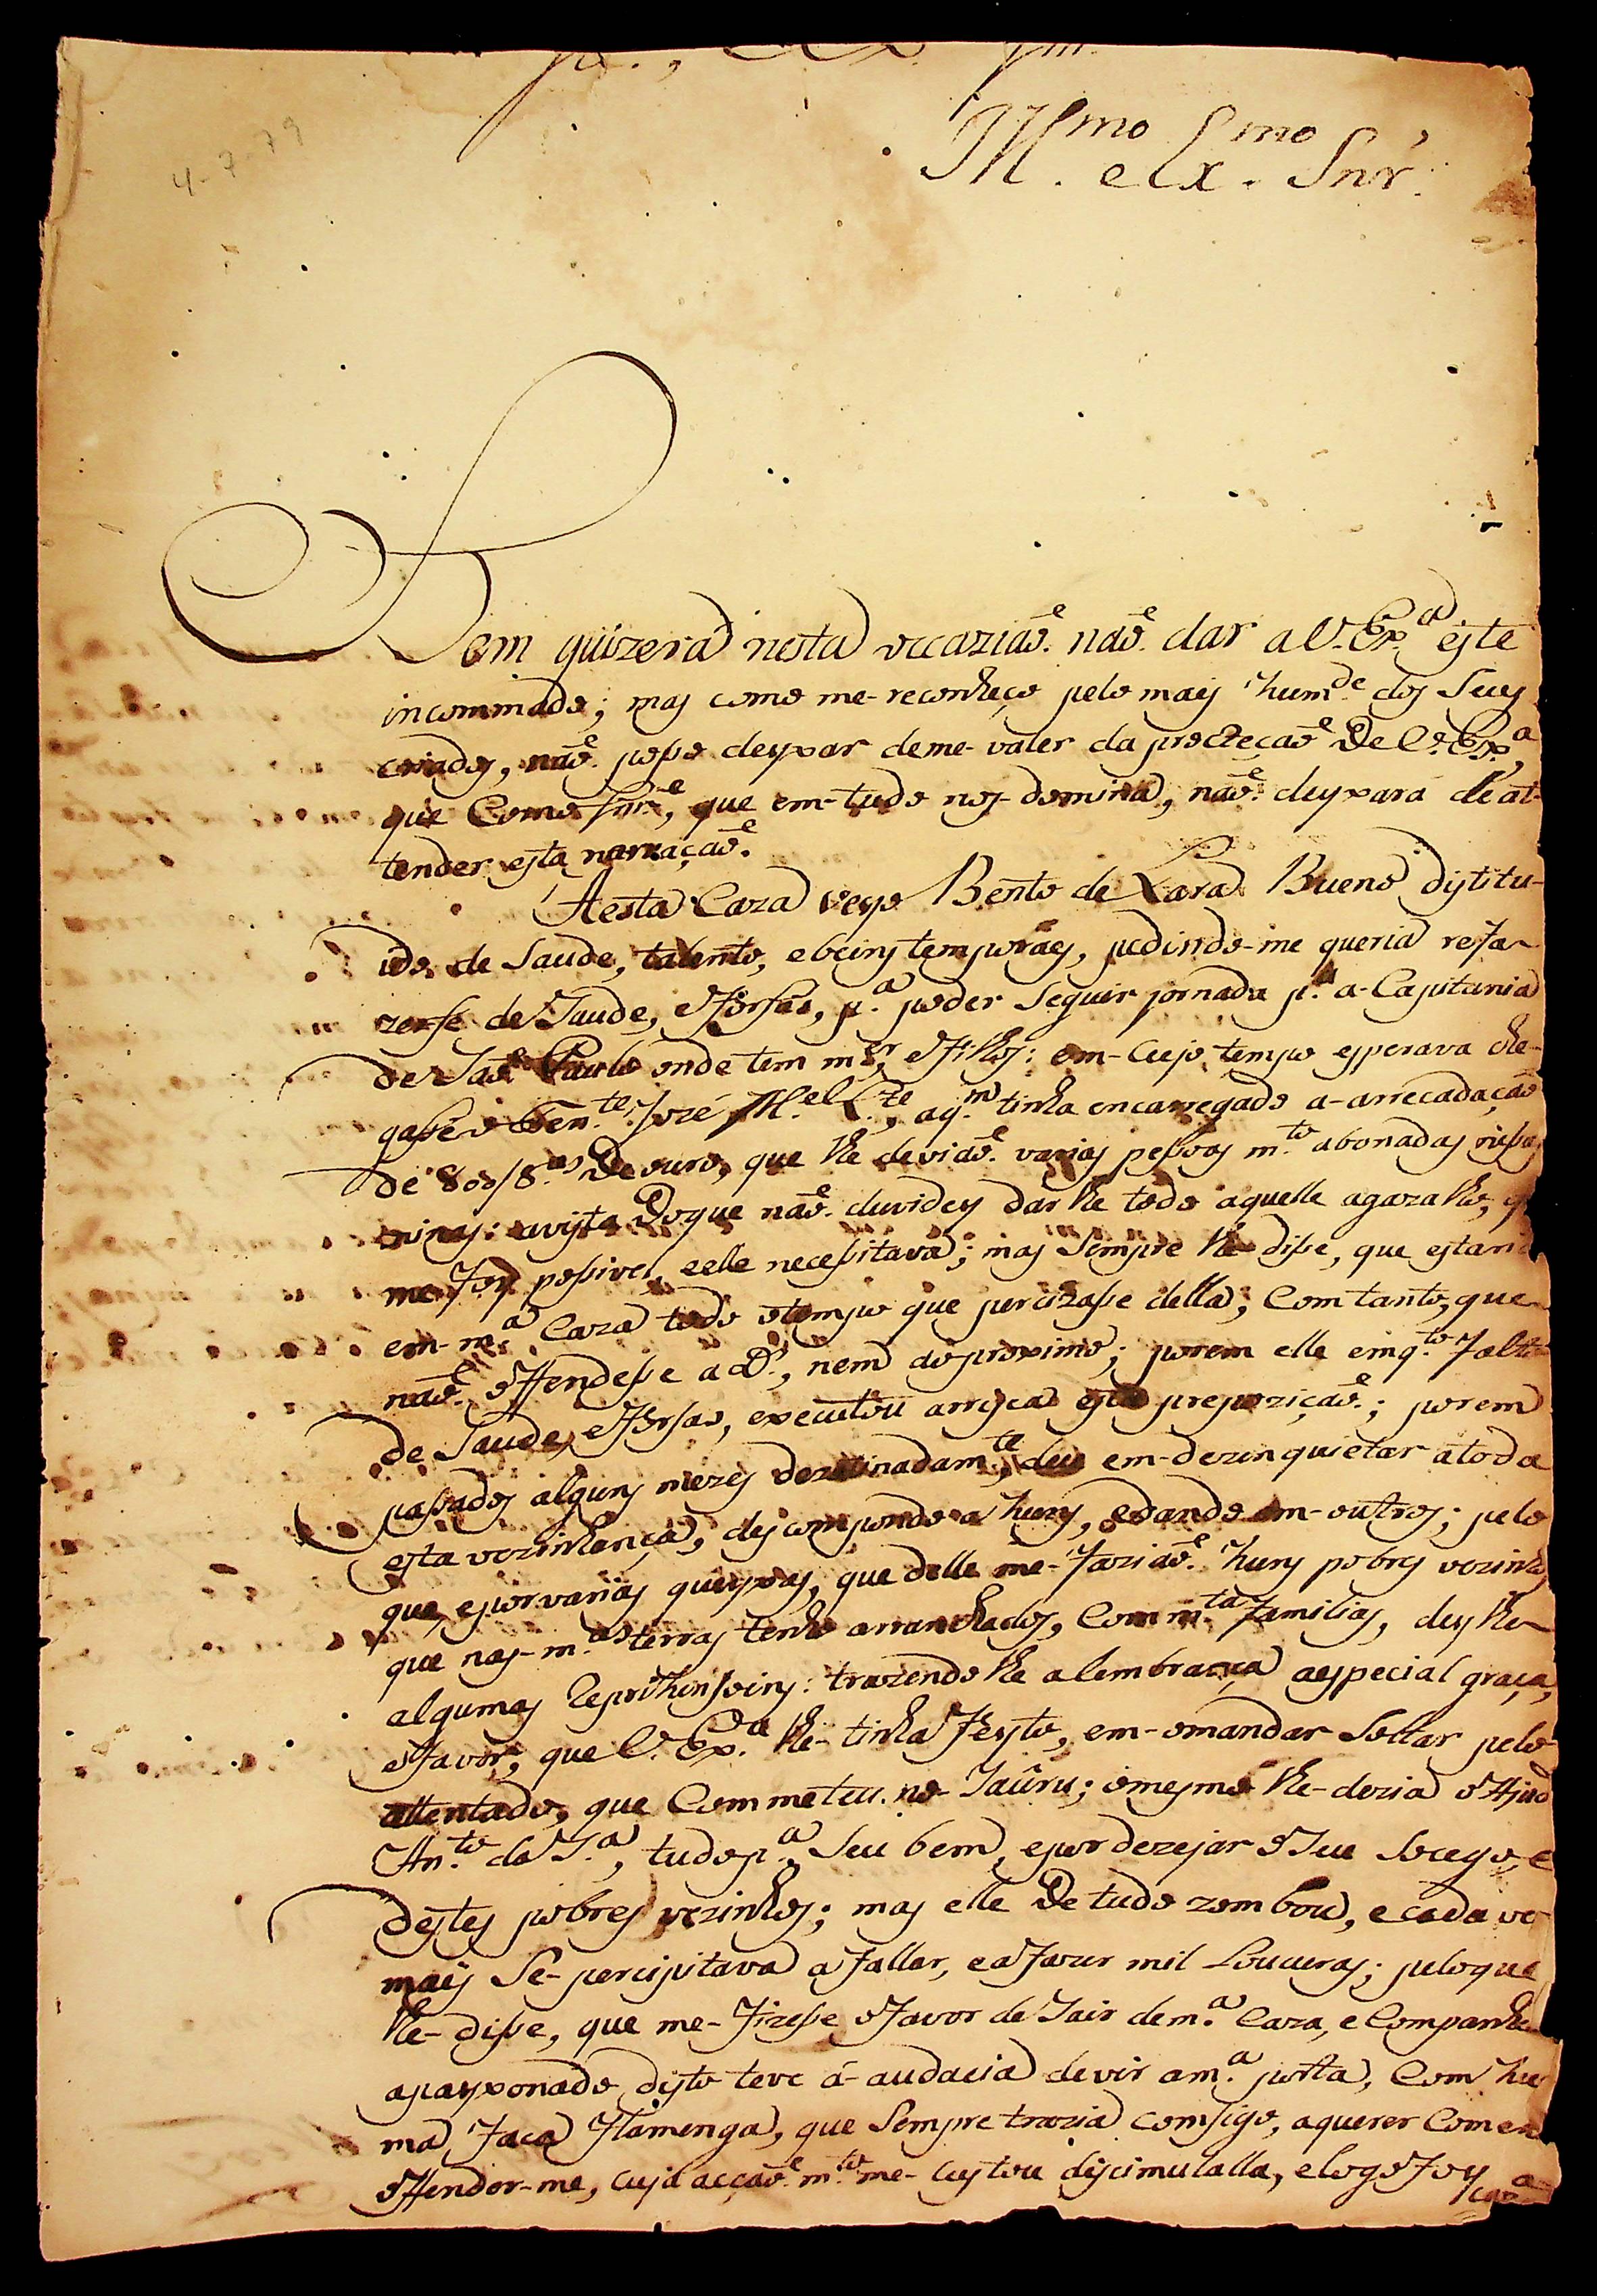 4-7-79
Ill.mo e Ex.mo Snr.
Bem quizera nesta occaziaõ naõ dar a V. Ex.a este
incommodo; mas como me-reconheço pelo mais humd.e dos seus
criados, naõ posso deyxar deme-valer da protecçaõ De V. Ex.a,
que Como Snr., que em-tudo nos-domina, naõ deyxará de at-
tender esta narraçaõ.
Aesta Caza veyo Bento de Lara Bueno distitu-
ido de Saude, talento, ebeins temporaes, pedindo-me queria refa-
zerse de Saude, eforsas, p.a poder Seguir jornada p.a a-Capitania
de Saõ Paulo onde tem m.er, efilhos; em-Cujo tempo esperava che-
gasse o Ten.te Jozé M.el, aq.m tinha encarregado a-arrecadaçaõ
de 800/8.as De ouro, que lhe deviaõ varias pessoas m.to abonadas
minas: avista Doque naõ duvidey darlhe todo aquelle agazalho, q
me foy possivel, eelle necessitava; mas Sempre lhe disse, que estaria
em-m.a Caza todo otempo que percizasse della; Comtanto, que
naõ offendesse a D.s, nem aoproximo; porem elle emq.to falto
de Saude, eforsas, executou arrisca esta propoziçaõ; porem
passados alguns mezes dezatinadam.te deu em-dezinquietar atoda
esta vezinhança, descompondo a huns, edando em-outros; pelo
que, epor varias queyxas, que delle me-faziaõ huns pobres vezinhos
que nas-m.as terras tenho arranchados, Com m.ta familias, deylhe
algumas Reprihensoins: trazendolhe alembrança aespecial graça,
efavor, que V. Ex.a lhe-tinha feyto, em-omandar Soltar pelo
attentado, que Commeteu no-Jaûru; omesmo lhe-dezia o
An.to da S.a, tudo p.a Seu bem, epor dezejar o Seu Socego, e
destes pobres vezinhos; mas elle De tudo zombou, e cada ve
mais Se-percipitava a fallar, e a fazer mil Loucuras; peloque
lhe-disse, que me-fizesse ofavor de Sair dem.a Caza, e Companhia
apayxonado disto teve á-audacia devir am.a porta, Com hu
ma faca flamenga, que Sempre trazia comsigo, aquerer Comella
offender-me, cuja acçaõ m.to me-Custou discimulalla, elogo foy